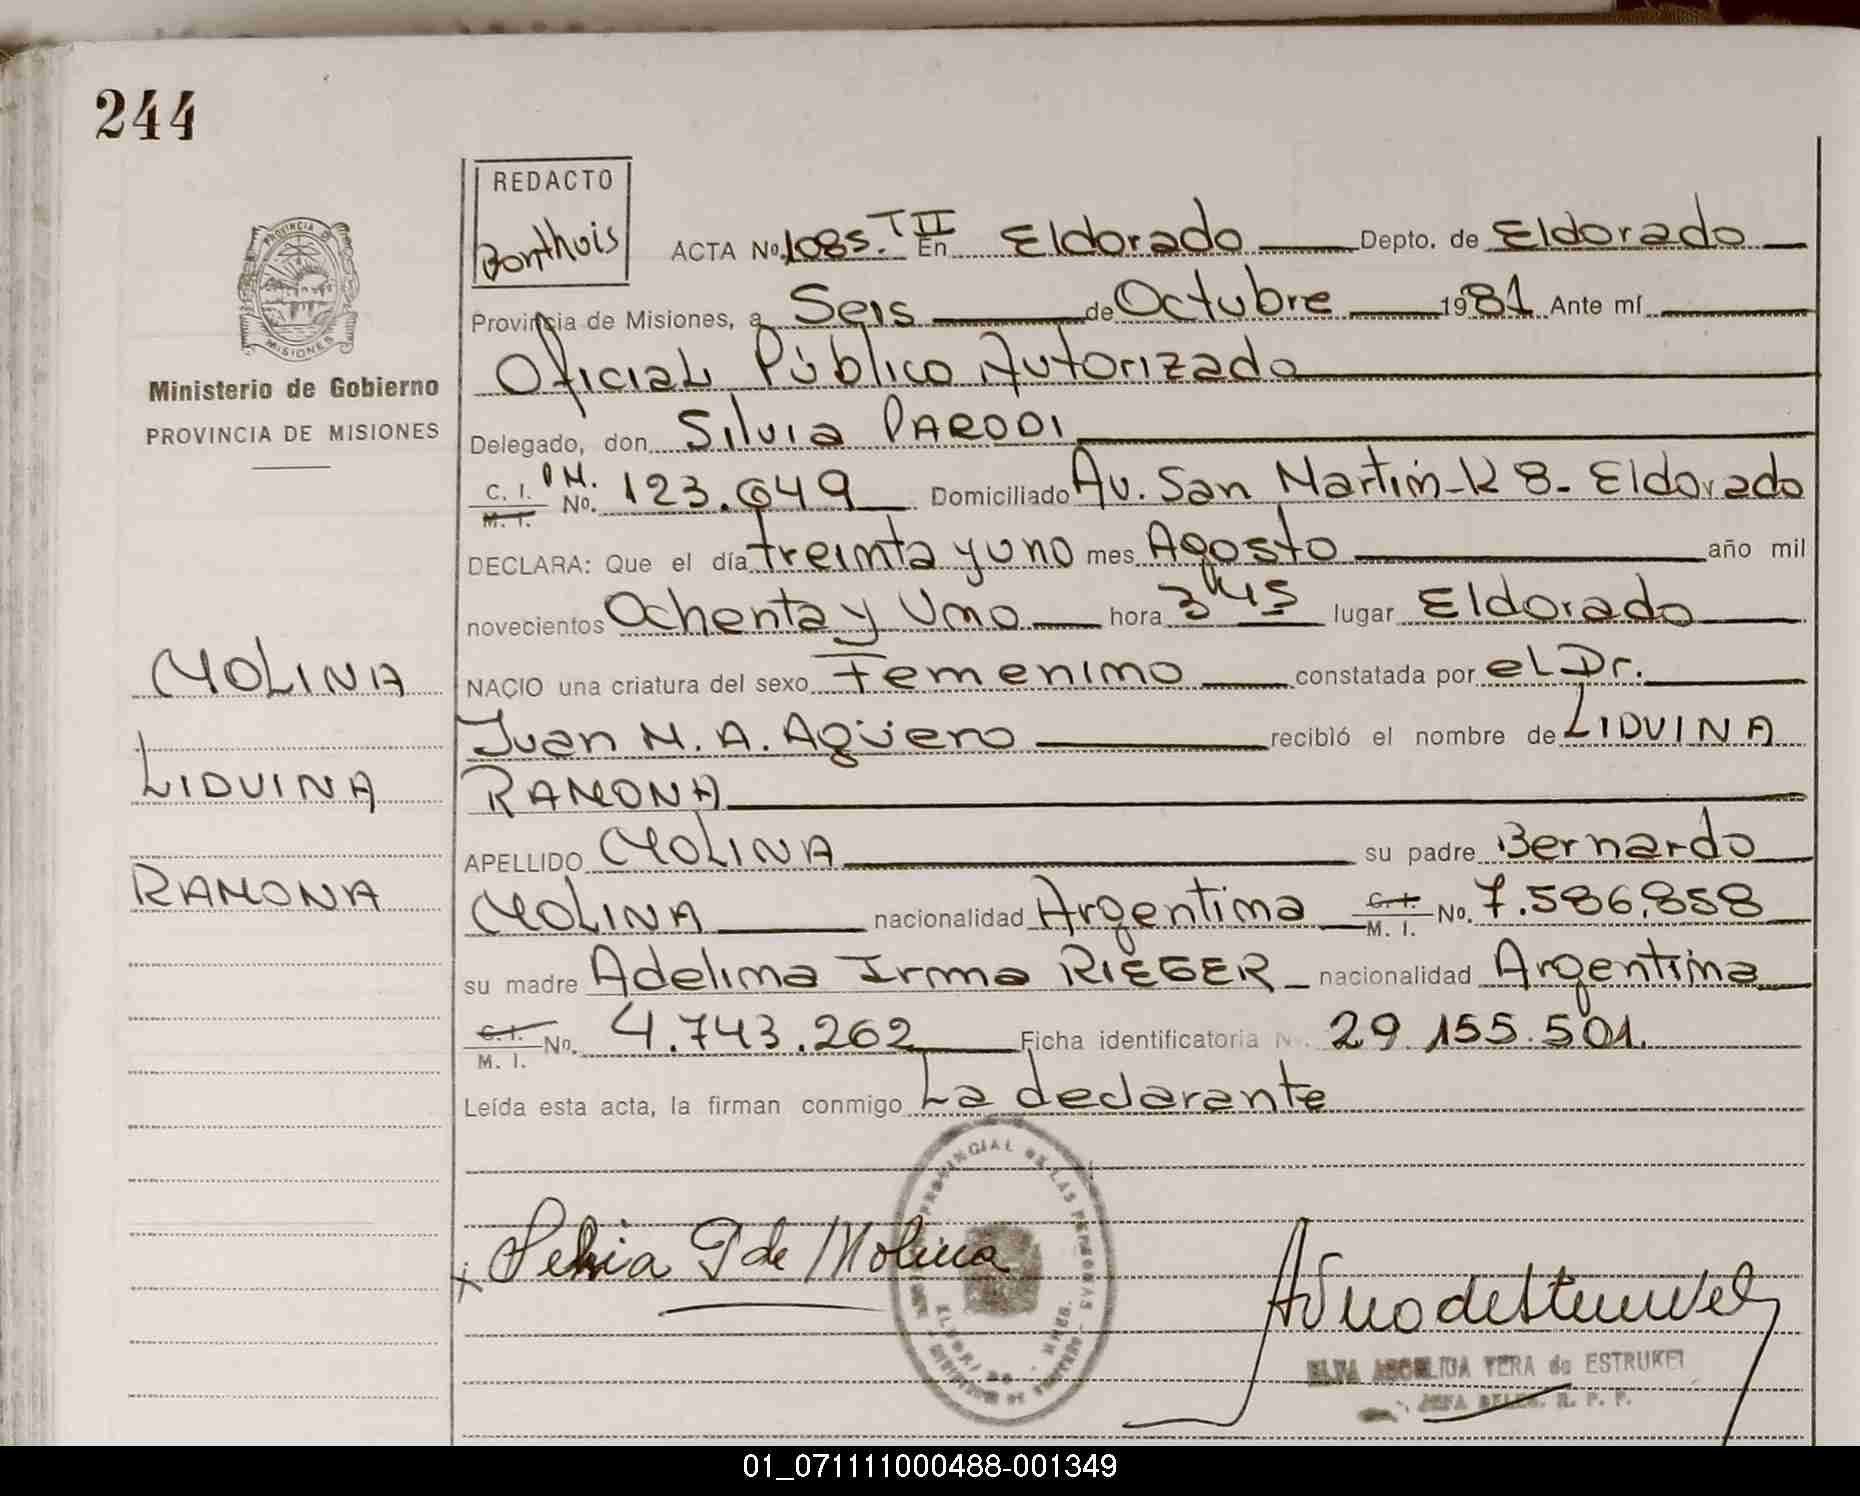 244
REDACTO
Bonthuis
ACTA No. 1085. T II En Eldorado Depto. de Eldorado
Provincia de Misiones, a Seis de Octubre 1981 Ante mí
Oficial Público Autorizado
Ministerio de Gobierno
PROVINCIA DE MISIONES
Delegado, don Silvia PARODI
C. I. M. I. No. 123.649 Domiciliado Av. San Martín - K 8 - Eldorado
DECLARA: Que el día treinta y uno mes Agosto año mil
novecientos Ochenta y Uno hora 3 h 45 lugar Eldorado
MOLINA
NACIO una criatura del sexo Femenino constatada por el Dr.
Juan M. A. Agüero recibió el nombre de LIDUINA
LIDUINA
RAMONA
APELLIDO MOLINA su padre Bernardo
RAMONA
MOLINA nacionalidad Argentina C. I. M. I. No. 7.586.858
su madre Adelina Irma RIEGER nacionalidad Argentina
C. I. M. I. No. 4.743.262 Ficha identificatoria N. 29.155.501.
Leída esta acta, la firman conmigo La declarante
de Molina
VERA de ESTRUKEL
R. P. P.
01_071111000488-001349